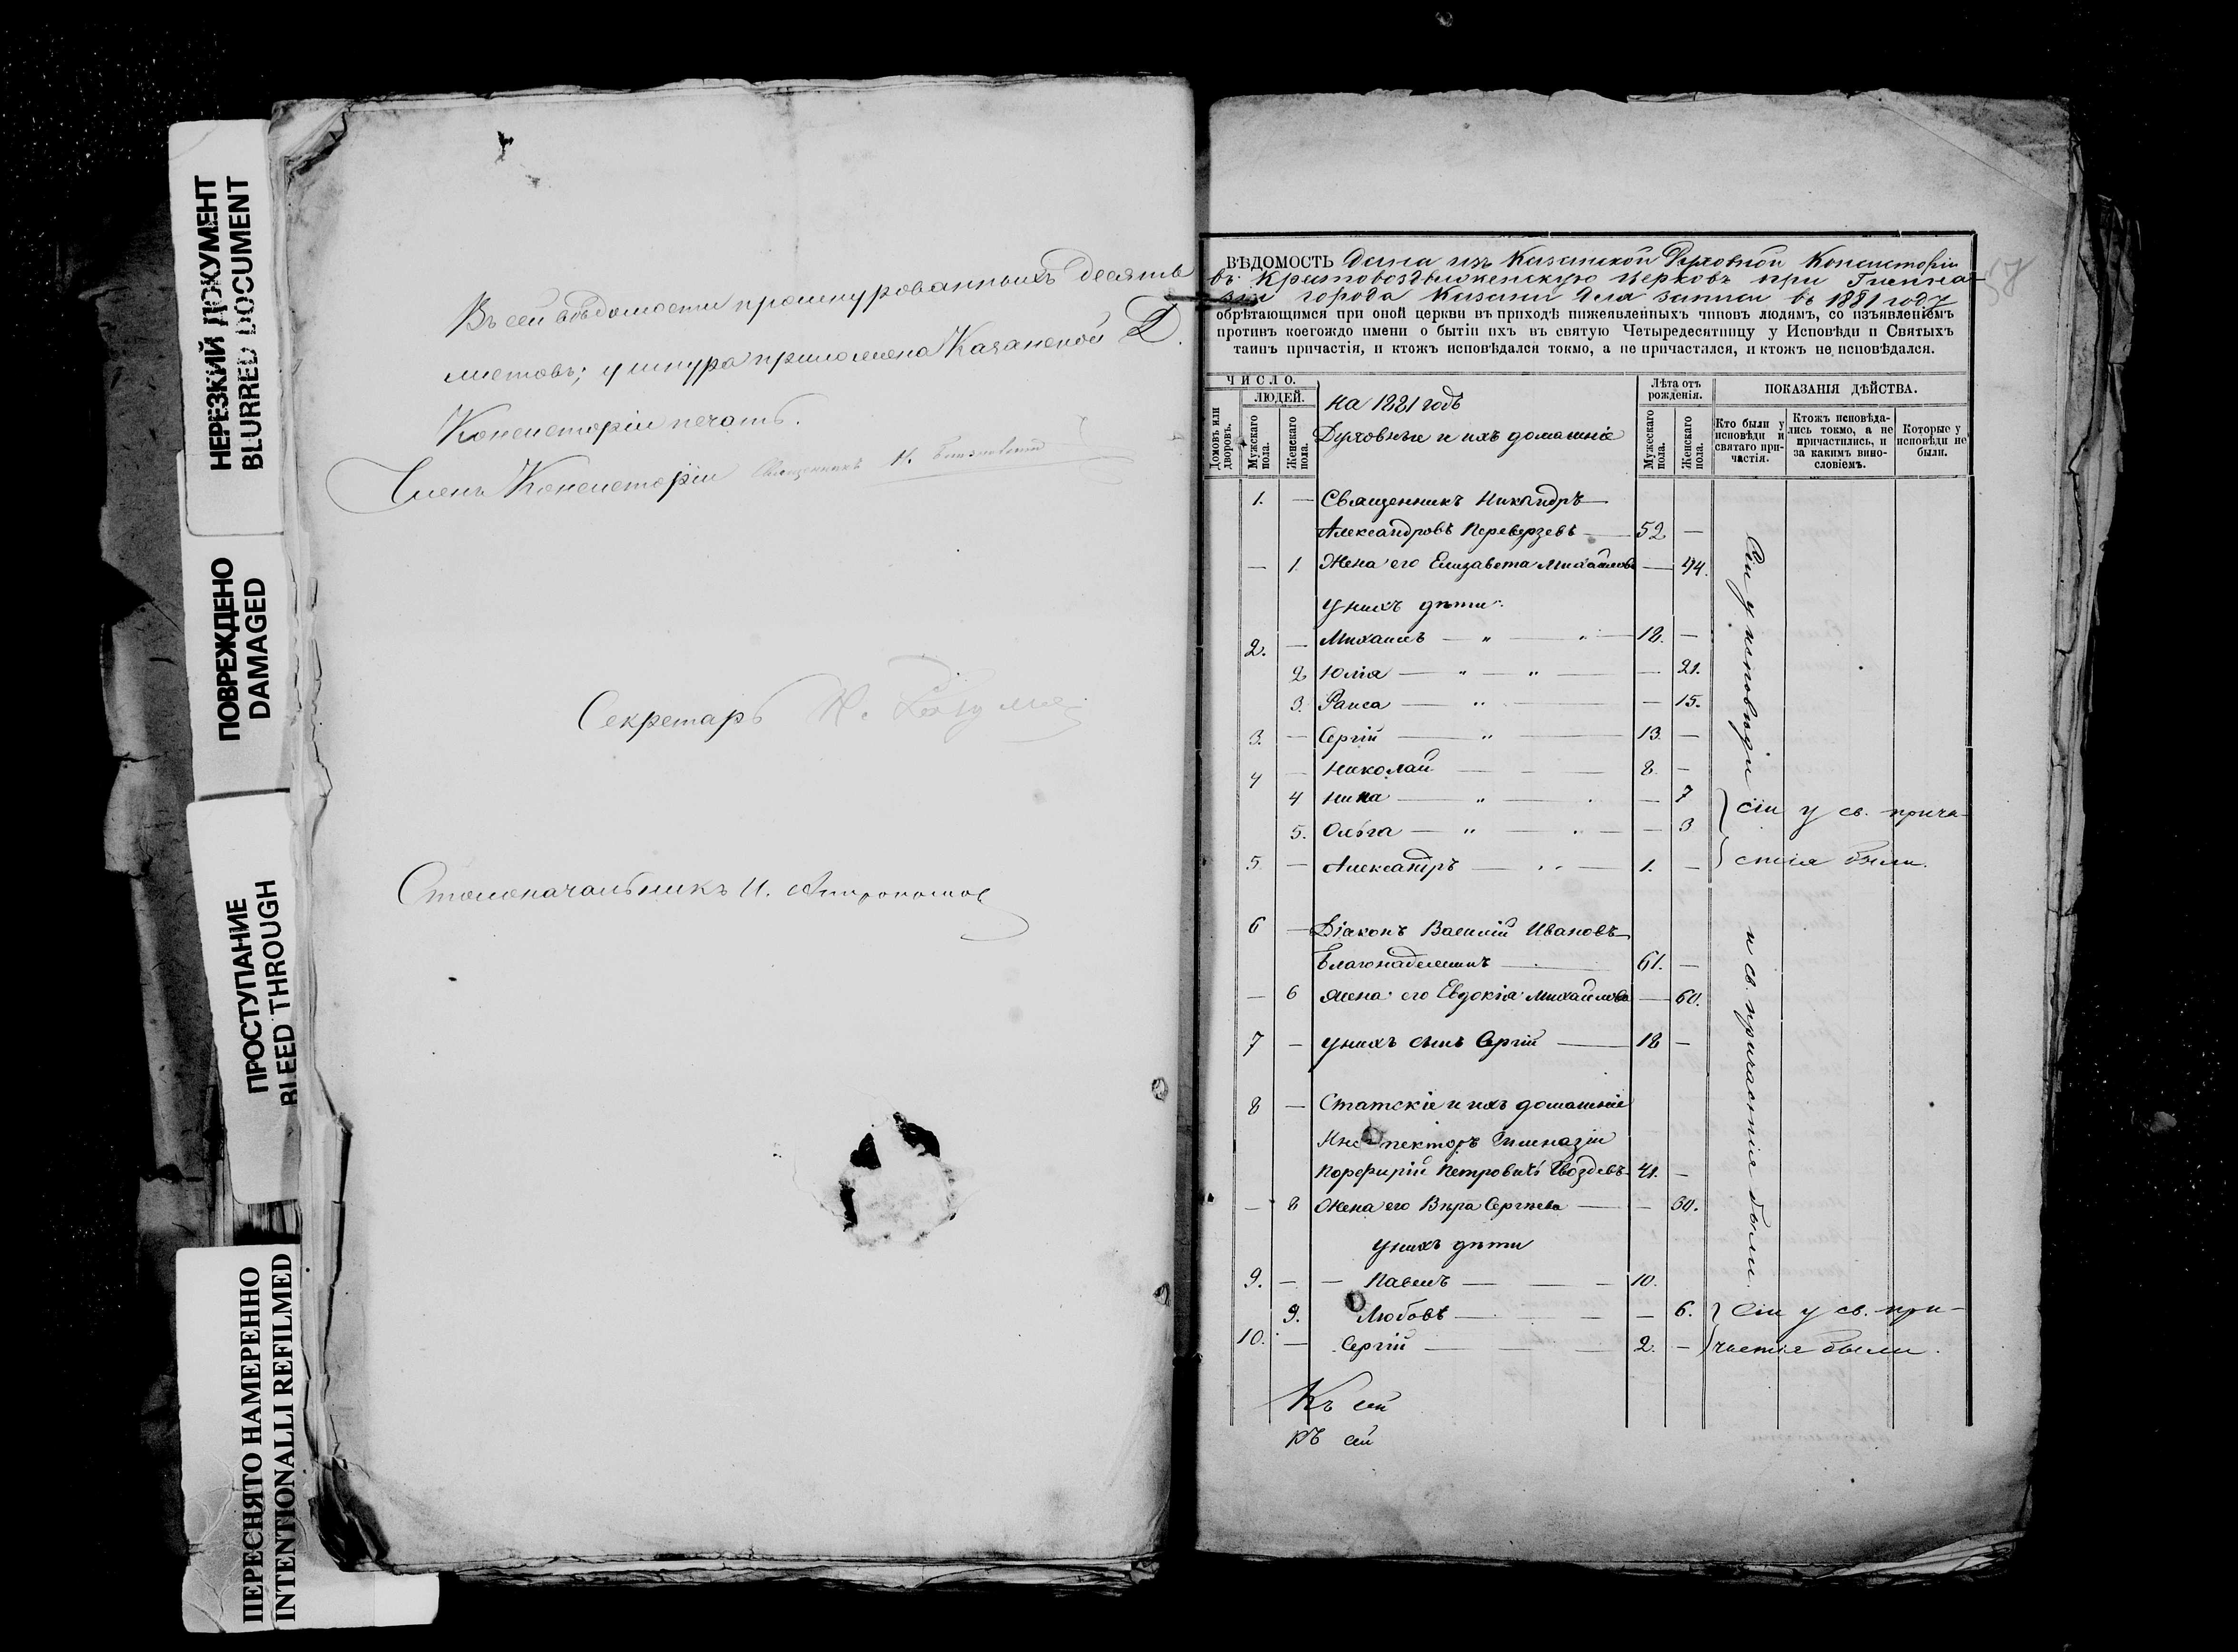 НЕРЕЗКИЙ ДОКУМЕНТ
BLURRED DOCUMENT
ПОВРЕЖДЕНО
DAMAGED
ПРОСТУПАНИЕ
BLEED THROUGH
ПЕРЕСНЯТО НАМЕРЕННО
INTENTIONALLI REFILMED
Въ сей вѣдомости прошнурованныхъ десять
листовъ; у шнура приложена Казанской Д.
Консисторіи печать.
Членъ Консисторіи Священникъ
Секретарь
Столоначальникъ И.
ВѢДОМОСТЬ Дана изъ Казанской Духовной Консисторіи
въ Крестовоздвиженскую церковь при Гимна-
зіи города Казани для записи въ 1881 году
обрѣтающимся при оной церкви въ приходѣ нижеявленныхъ чиновъ людямъ, со изъявленіемъ
противъ коегождо имени о бытіи ихъ въ святую Четыредесятницу у Исповѣди и Святыхъ
таинъ причастія, и ктожъ исповѣдался токмо, а не причастился, и ктожъ не исповѣдался.
ЧИСЛО.
ЛЮДЕЙ.
Домовъ или дворовъ.
Мужескаго пола.
Женскаго пола.
на 1881 годъ
Духовные и ихъ домашніе
Лѣта отъ рожденія.
Мужескаго пола.
Женскаго пола.
ПОКАЗАНІЯ ДѢЙСТВА.
Кто были у исповѣди и святаго причастія.
Ктожъ исповѣда-лись токмо, а не причастились, и за какимъ вино-словіемъ.
Которые у исповѣди не были.
1. — Священникъ Никандръ
Александровъ Переверзевъ — 52 —
— 1 Жена его Елизавета Михайлова — 44.
у нихъ дѣти:
2. — Михаилъ — " — " — 18. —
2 Юлія — " — " — — 21.
3. Раиса — " — — 15.
3. — Сергій — " — 13. —
4 — Николай — — — 8. —
4 Нина — " — — 7
5. Ольга — " — — 3
5 — Александръ — " — 1. —
Сіи у исповѣди
и св. причастія были.
сіи у св. прича-
стія были.
6 — Діаконъ Василій Ивановъ
Благонадеждинъ — 61. —
— 6 жена его Евдокія Михайлова — 60.
7 — у нихъ сынъ Сергій — 18 —
8 — Статскіе и ихъ домашніе
Инспекторъ Гимназіи
Порфирій Петровичъ Гвоздевъ 41. —
— 8 Жена его Вѣра Сергѣева — — 30.
у нихъ дѣти
9. — — Павелъ — — 10.
9. Любовь — — 6.
10. — Сергій — — 2. —
Сіи у св. при-
частія были.
Къ сей
къ сей